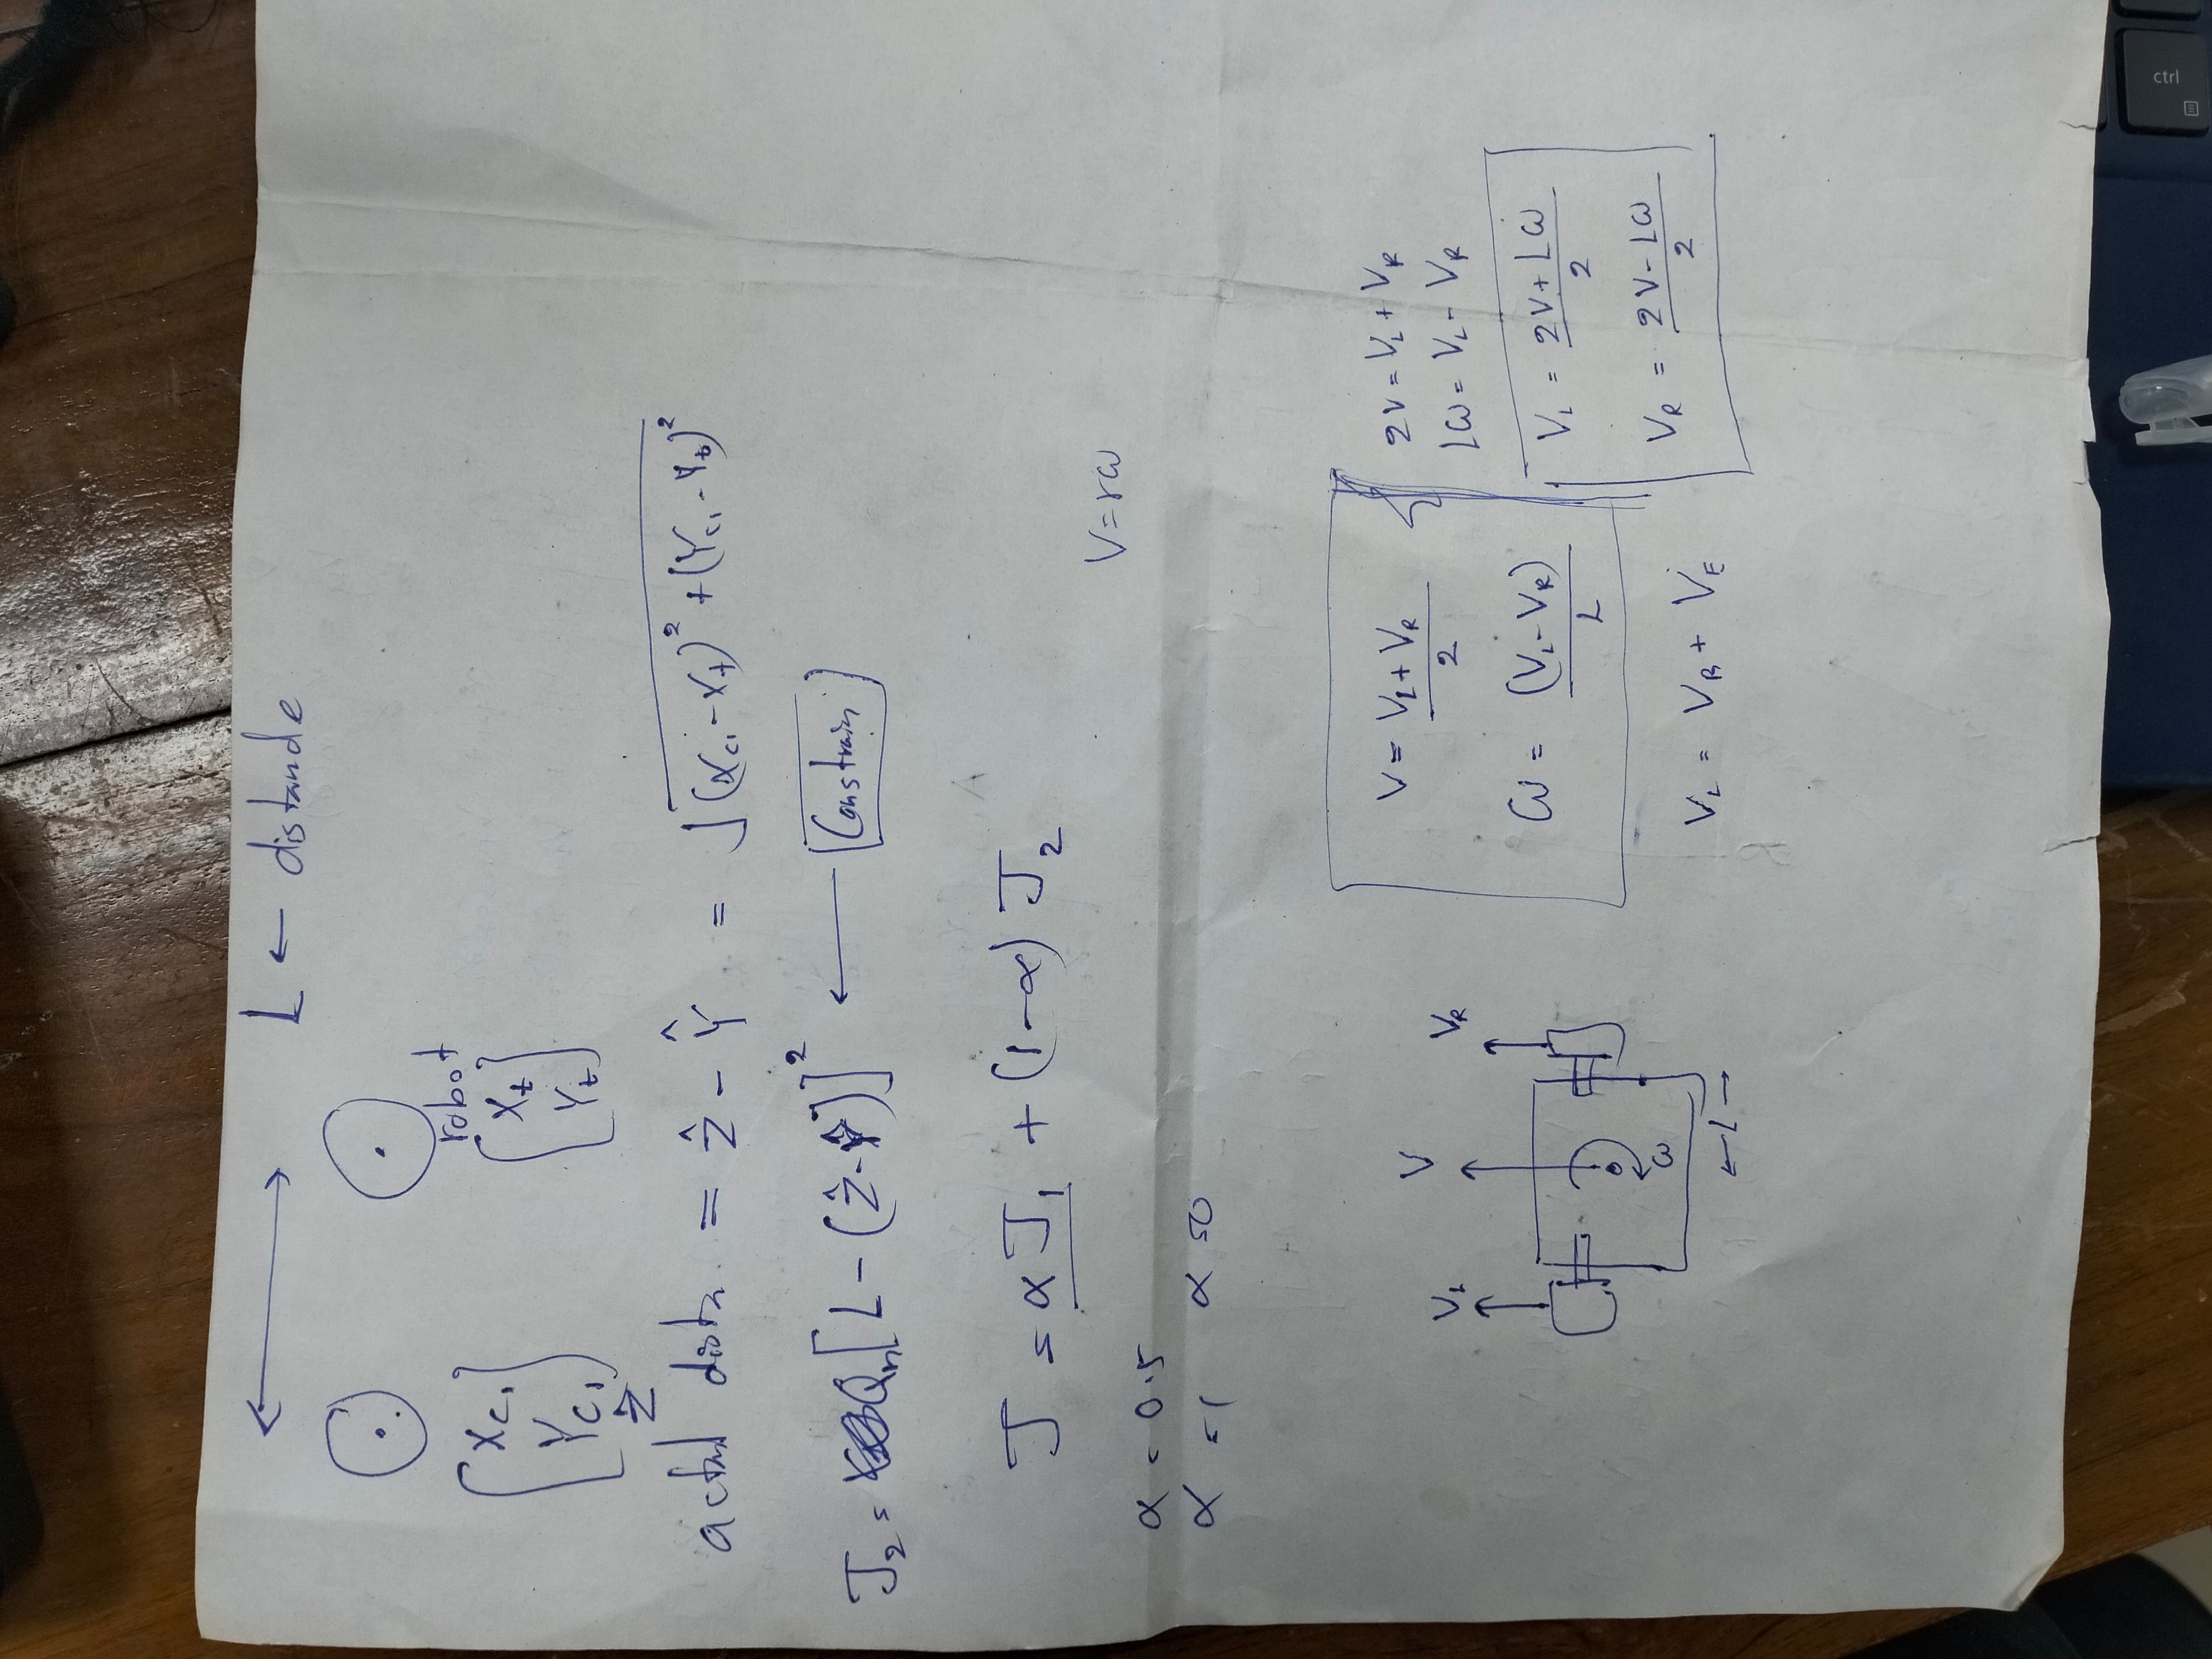 L ← distande
robot
[Xc1 Yc1] [Xt Yt]
Z
actual distn. = Ẑ - Ŷ = √(Xc1 - Xt)² + (Yc1 - Yt)²
J2 = Qn[L - (Ẑ - Ŷ)]² ← [Constrain]
J = αJ1 + (1-α)J2
α = 0.5
α = 1 α = 0
V = rω
VL V VR
ω
← L →
V = VL + VR / 2
ω = (VL - VR) / L
VL = VR + VE
2V = VL + VR
Lω = VL - VR
VL = 2V + Lω / 2
VR = 2V - Lω / 2
ctrl